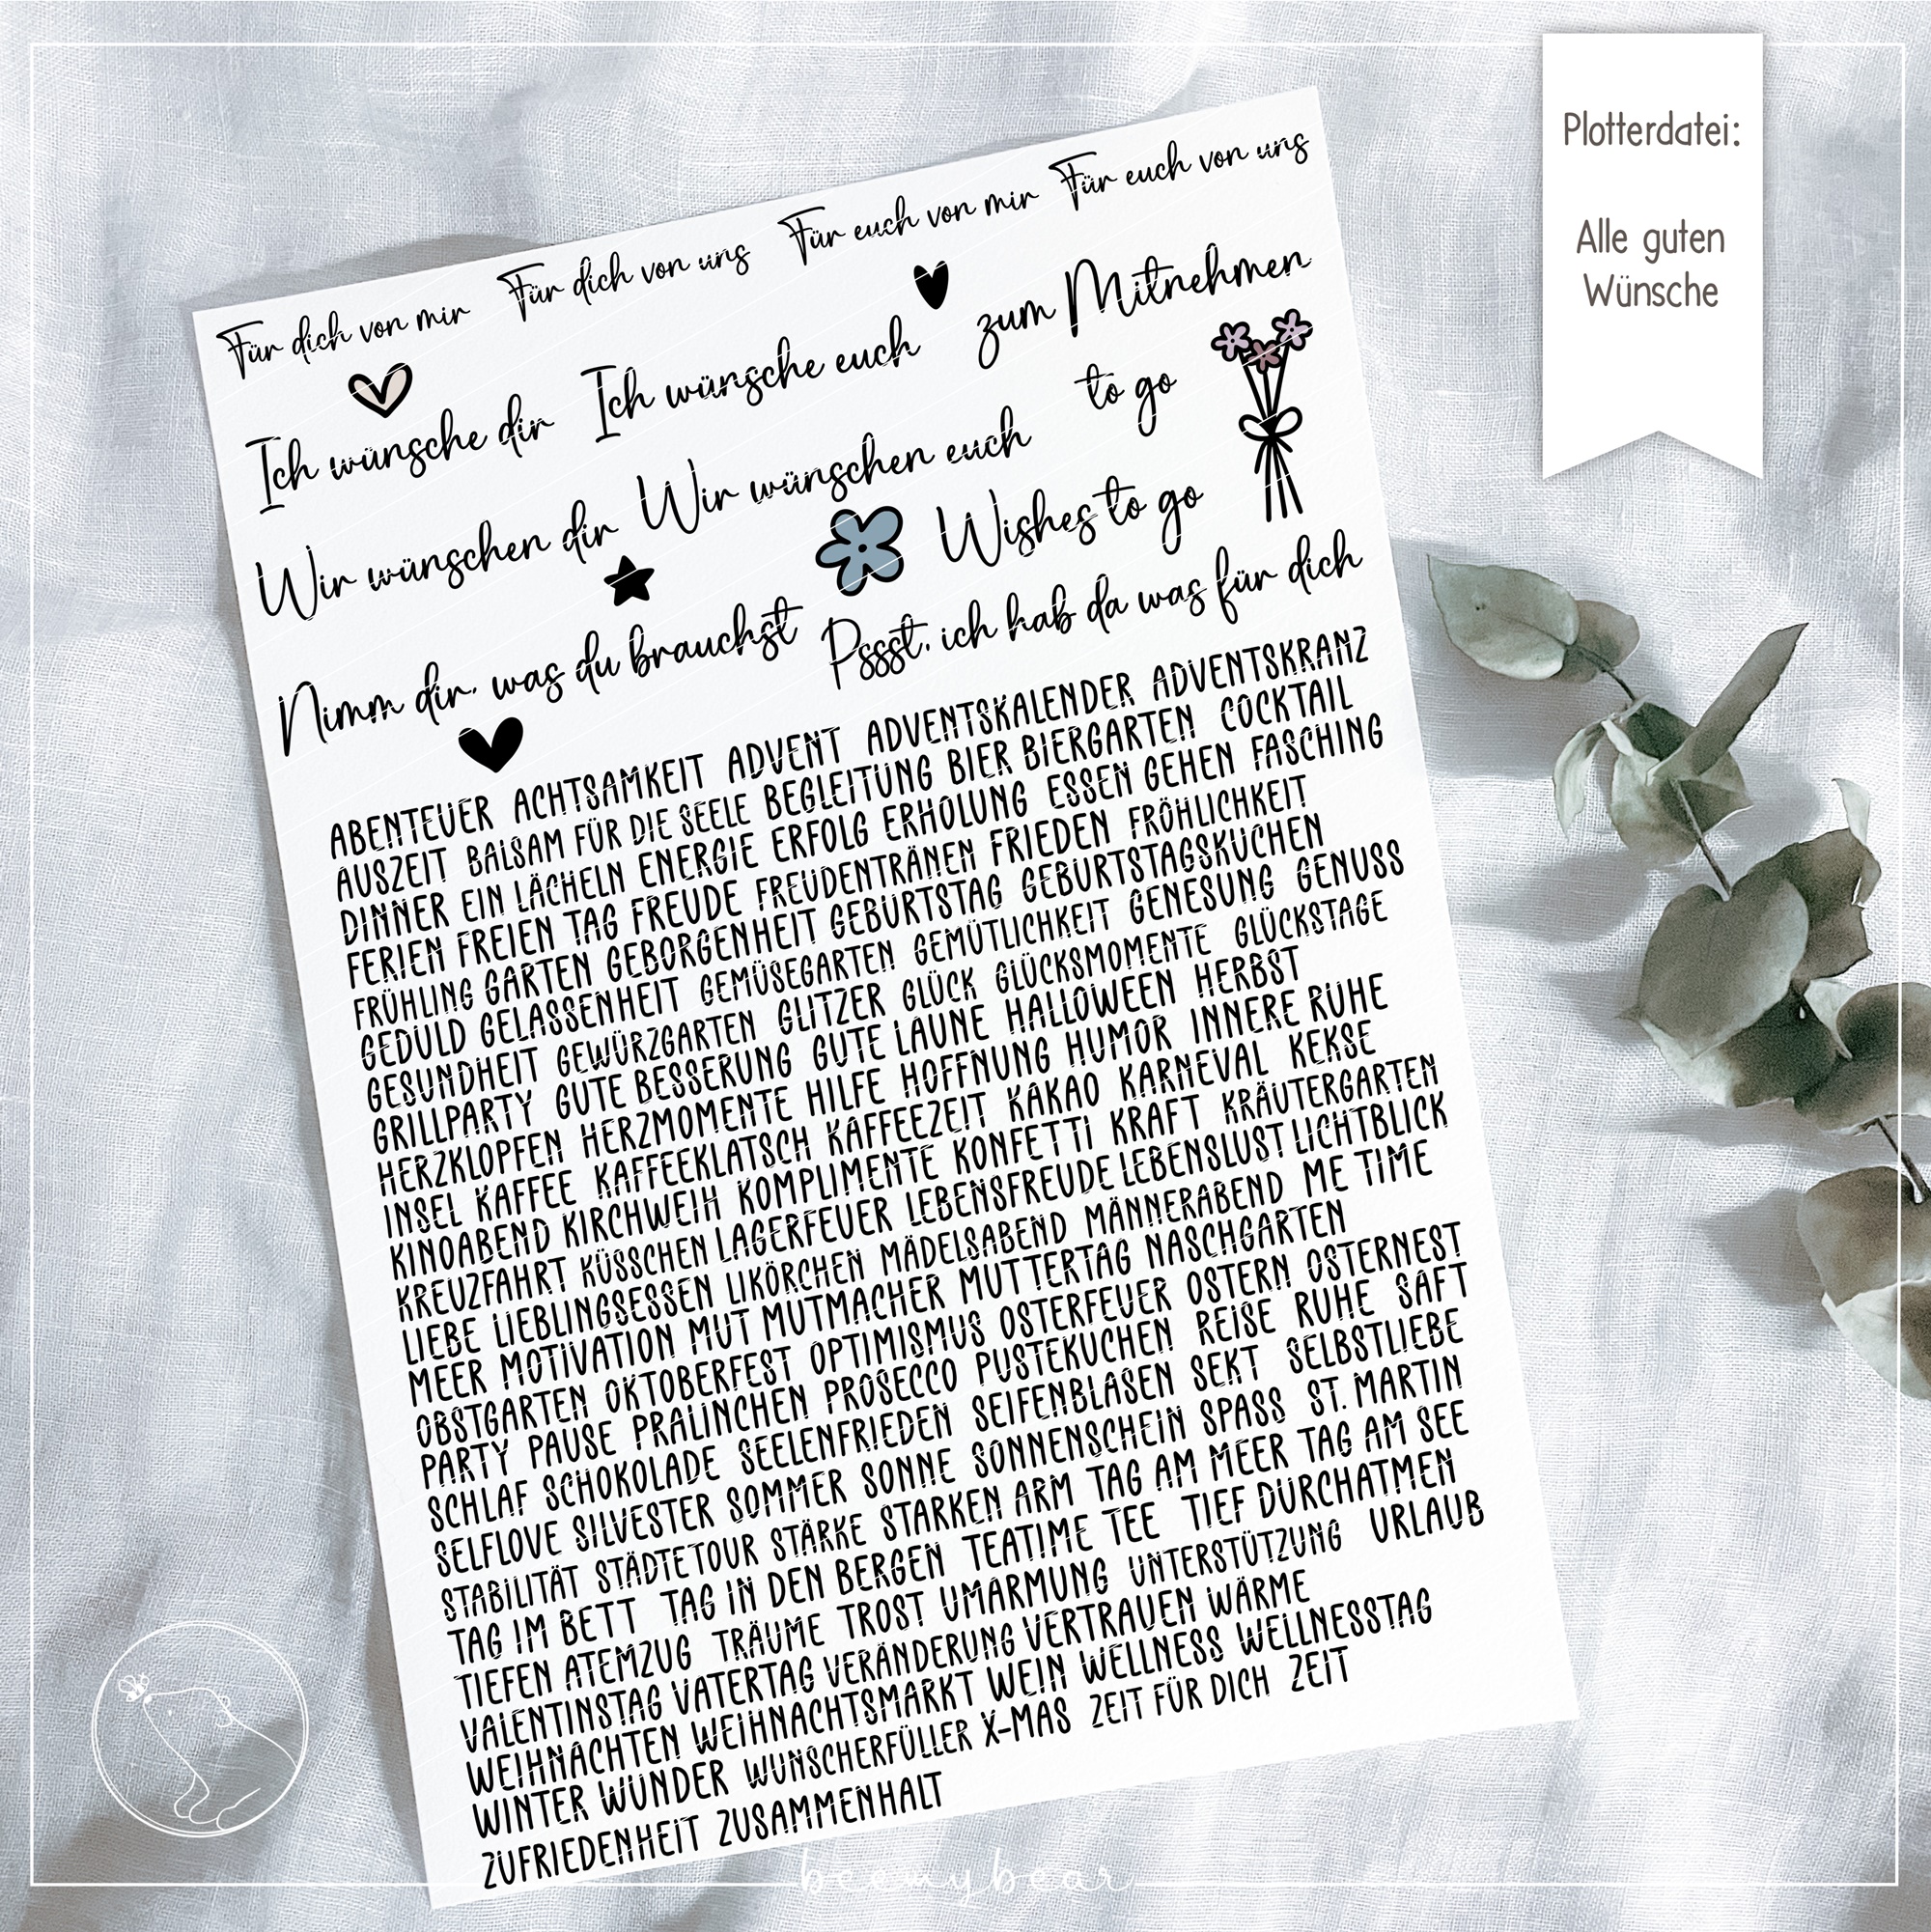 Plotterdatei:
Alle guten
Wünsche
Für dich von mir Für dich von uns Für euch von mir Für euch von uns
Ich wünsche dir Ich wünsche euch zum Mitnehmen
Wir wünschen dir Wir wünschen euch to go
Wishes to go
Nimm dir, was du brauchst Pssst, ich hab da was für dich
ABENTEUER ACHTSAMKEIT ADVENT ADVENTSKALENDER ADVENTSKRANZ
AUSZEIT BALSAM FÜR DIE SEELE BEGLEITUNG BIER BIERGARTEN COCKTAIL
DINNER EIN LÄCHELN ENERGIE ERFOLG ERHOLUNG ESSEN GEHEN FASCHING
FERIEN FREIEN TAG FREUDE FREUDENTRÄNEN FRIEDEN FRÖHLICHKEIT
FRÜHLING GARTEN GEBORGENHEIT GEBURTSTAG GEBURTSTAGSKUCHEN
GEDULD GELASSENHEIT GEMÜSEGARTEN GEMÜTLICHKEIT GENESUNG GENUSS
GESUNDHEIT GEWÜRZGARTEN GLITZER GLÜCK GLÜCKSMOMENTE GLÜCKSTAGE
GRILLPARTY GUTE BESSERUNG GUTE LAUNE HALLOWEEN HERBST
HERZKLOPFEN HERZMOMENTE HILFE HOFFNUNG HUMOR INNERE RUHE
INSEL KAFFEE KAFFEEKLATSCH KAFFEEZEIT KAKAO KARNEVAL KEKSE
KINOABEND KIRCHWEIH KOMPLIMENTE KONFETTI KRAFT KRÄUTERGARTEN
KREUZFAHRT KÜSSCHEN LAGERFEUER LEBENSFREUDE LEBENSLUST LICHTBLICK
LIEBE LIEBLINGSESSEN LIKÖRCHEN MÄDELSABEND MÄNNERABEND ME TIME
MEER MOTIVATION MUT MUTMACHER MUTTERTAG NASCHGARTEN
OBSTGARTEN OKTOBERFEST OPTIMISMUS OSTERFEUER OSTERN OSTERNEST
PARTY PAUSE PRALINCHEN PROSECCO PUSTEKUCHEN REISE RUHE SAFT
SCHLAF SCHOKOLADE SEELENFRIEDEN SEIFENBLASEN SEKT SELBSTLIEBE
SELFLOVE SILVESTER SOMMER SONNE SONNENSCHEIN SPASS ST. MARTIN
STABILITÄT STÄDTETOUR STÄRKE STARKEN ARM TAG AM MEER TAG AM SEE
TAG IM BETT TAG IN DEN BERGEN TEATIME TEE TIEF DURCHATMEN
TIEFEN ATEMZUG TRÄUME TROST UMARMUNG UNTERSTÜTZUNG URLAUB
VALENTINSTAG VATERTAG VERÄNDERUNG VERTRAUEN WÄRME
WEIHNACHTEN WEIHNACHTSMARKT WEIN WELLNESS WELLNESSTAG
WINTER WUNDER WUNSCHERFÜLLER X-MAS ZEIT FÜR DICH ZEIT
ZUFRIEDENHEIT ZUSAMMENHALT
beemybear